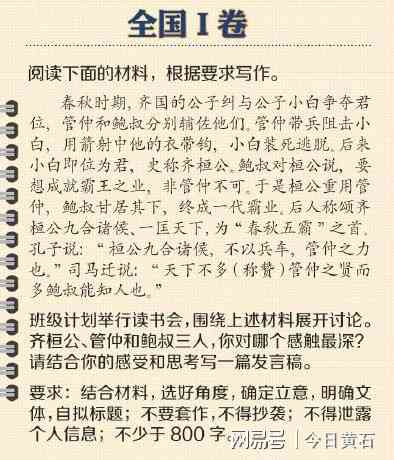 全国Ⅰ卷
阅读下面的材料，根据要求写作。
春秋时期，齐国的公子纠与公子小白争夺君
位，管仲和鲍叔分别辅佐他们。管仲带兵阻击小
白，用箭射中他的衣带钩，小白装死逃脱。后来
小白即位为君，史称齐桓公。鲍叔对桓公说，要
想成就霸王之业，非管仲不可。于是桓公重用管
仲，鲍叔甘居其下，终成一代霸业。后人称颂齐
桓公九合诸侯、一匡天下，为“春秋五霸”之首。
孔子说：“桓公九合诸侯，不以兵车，管仲之力
也。”司马迁说：“天下不多（称赞）管仲之贤而
多鲍叔能知人也。”
班级计划举行读书会，围绕上述材料展开讨论。
齐桓公、管仲和鲍叔三人，你对哪个感触最深？
请结合你的感受和思考写一篇发言稿。
要求：结合材料，选好角度，确定立意，明确文
体，自拟标题；不要套作，不得抄袭；不得泄露
个人信息；不少于800字。
网易号 | 今日黄石